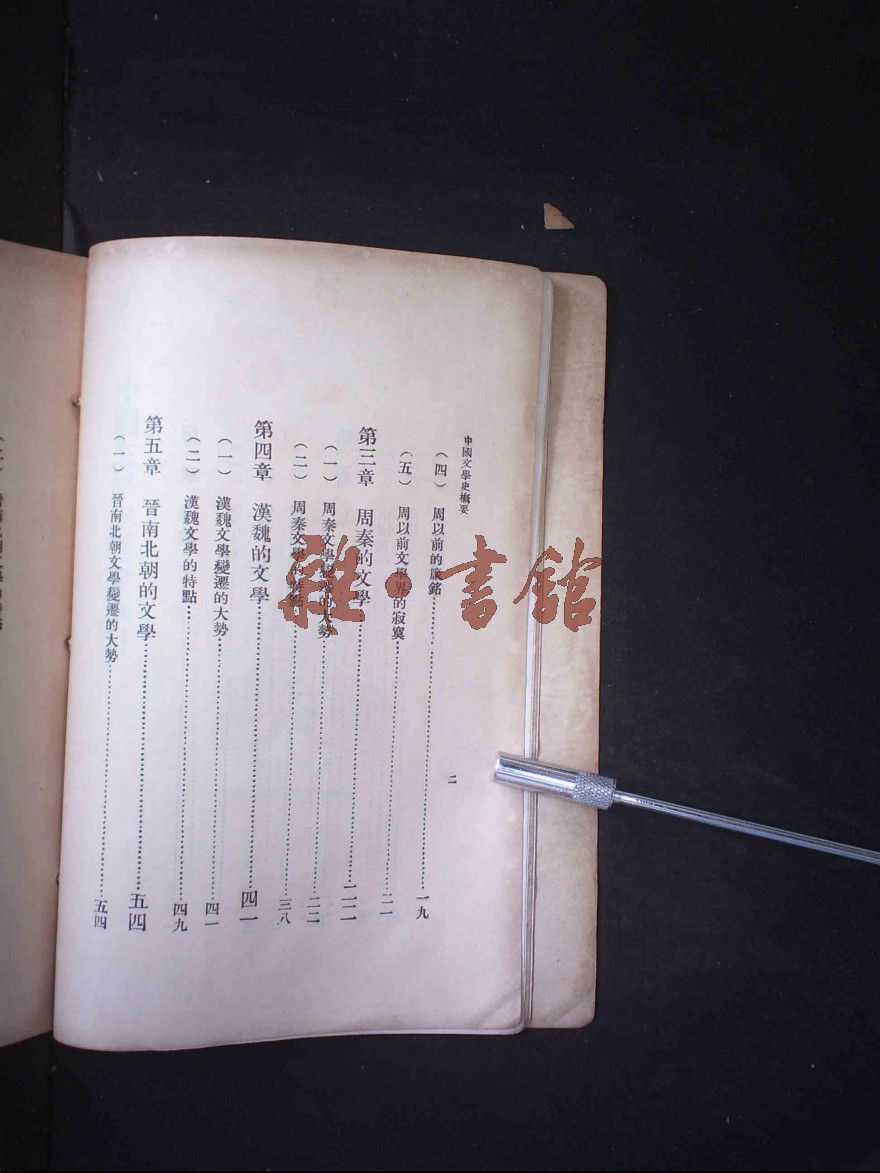 中國文學史概要
二
（四）　周以前的箴銘……一九
（五）　周以前文學界的寂寞……二一
第三章　周秦的文學……二二
（一）　周秦文學變遷的大勢……二二
（二）　周秦文學的特點……三八
第四章　漢魏的文學……四一
（一）　漢魏文學變遷的大勢……四一
（二）　漢魏文學的特點……四九
第五章　晉南北朝的文學……五四
（一）　晉南北朝文學變遷的大勢……五四
雜·書館